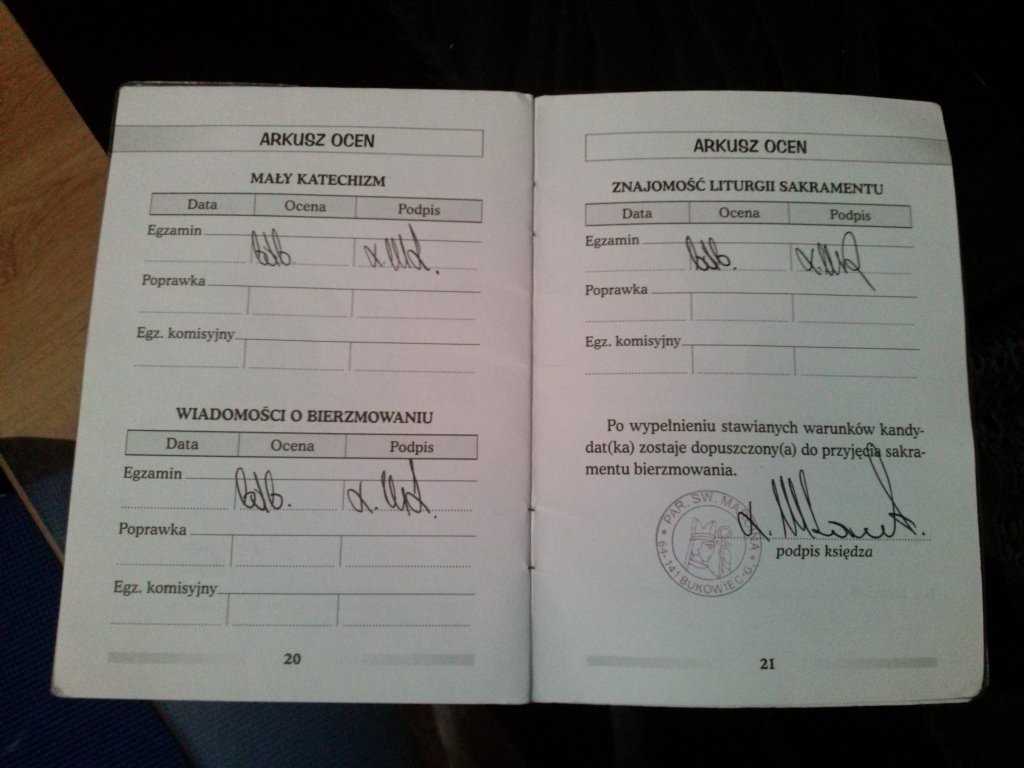 ARKUSZ OCEN
MAŁY KATECHIZM
Data Ocena Podpis
Egzamin
Poprawka
Egz. komisyjny
WIADOMOŚCI O BIERZMOWANIU
Data Ocena Podpis
Egzamin
Poprawka
Egz. komisyjny
20
ARKUSZ OCEN
ZNAJOMOŚĆ LITURGII SAKRAMENTU
Data Ocena Podpis
Egzamin
Poprawka
Egz. komisyjny
Po wypełnieniu stawianych warunków kandy-
dat(ka) zostaje dopuszczony(a) do przyjęcia sakra-
mentu bierzmowania.
PAR. ŚW.
64-141 BUKOWIEC-G.
podpis księdza
21